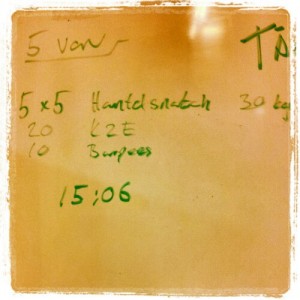 5 varv
TA
5x5 Hantelsnatch 30 kg
20 K2E
10 Burpees
15:06